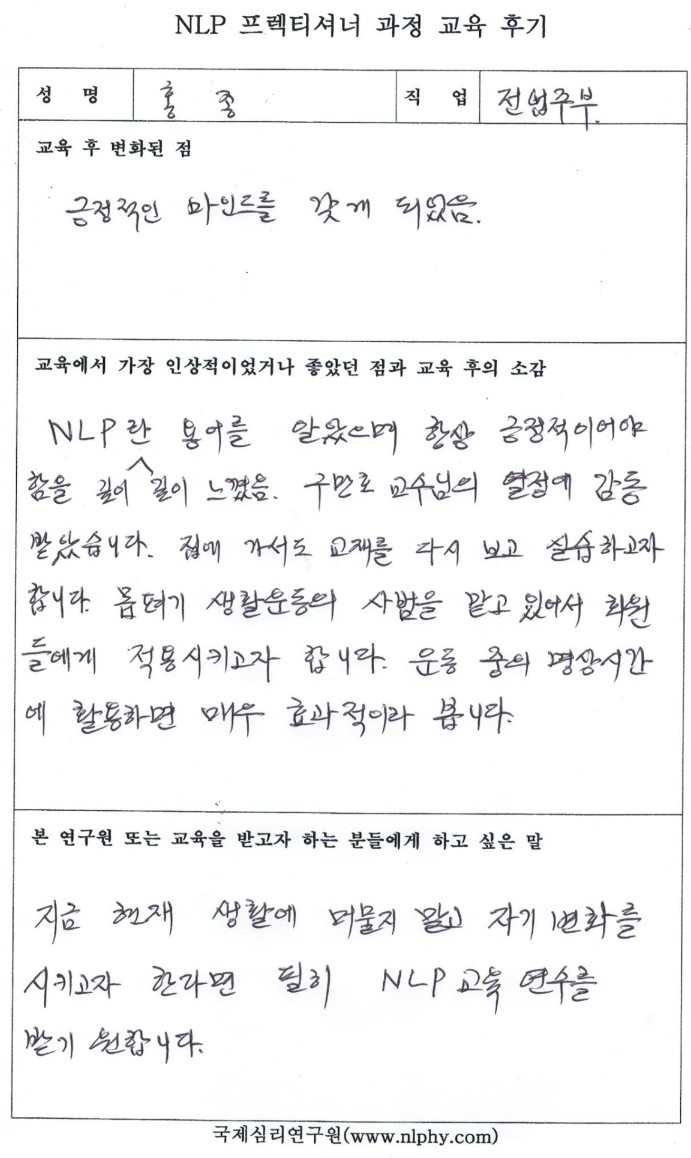 NLP 프렉티셔너 과정 교육 후기
성 명 홍 종 직 업 전업주부.
교육 후 변화된 점
긍정적인 마인드를 갖게 되었음.
교육에서 가장 인상적이었거나 좋았던 점과 교육 후의 소감
NLP란 용어를 알았으며 항상 긍정적이어야
함을 깊이 깊이 느꼈음. 구만호 교수님의 열정에 감동
받았습니다. 집에 가서도 교재를 다시 보고 실습하고자
합니다. 몹펴기 생활운동의 사범을 맡고 있어서 회원
들에게 적용시키고자 합니다. 운동 중의 명상시간
에 활용하면 매우 효과적이라 봅니다.
본 연구원 또는 교육을 받고자 하는 분들에게 하고 싶은 말
지금 현재 생활에 머물지 말고 자기 변화를
시키고자 한다면 필히 NLP 교육 연수를
받기 원합니다.
국제심리연구원(www.nlphy.com)